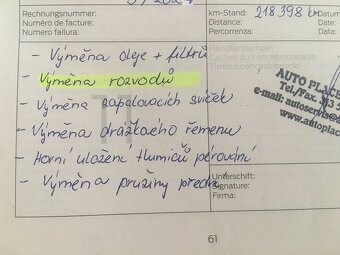 Rechnungsnummer:
Numéro de facture:
Numero fattura:
km-Stand: 218 398 km
Distance:
Percorrenza:
Händlerstempel
Cachet du concessionnaire
Timbro concessionario
- Výměna oleje + filtrů
- Výměna rozvodů
- Výměna zapalovacích svíček
- Výměna drážkového řemenu
- Horní uložení tlumičů pérování
- Výměna pružiny přední
AUTO PLACE
Tel./Fax.
e-mail: autoservis@
www.autoplac
Unterschrift:
Signature:
Firma:
61